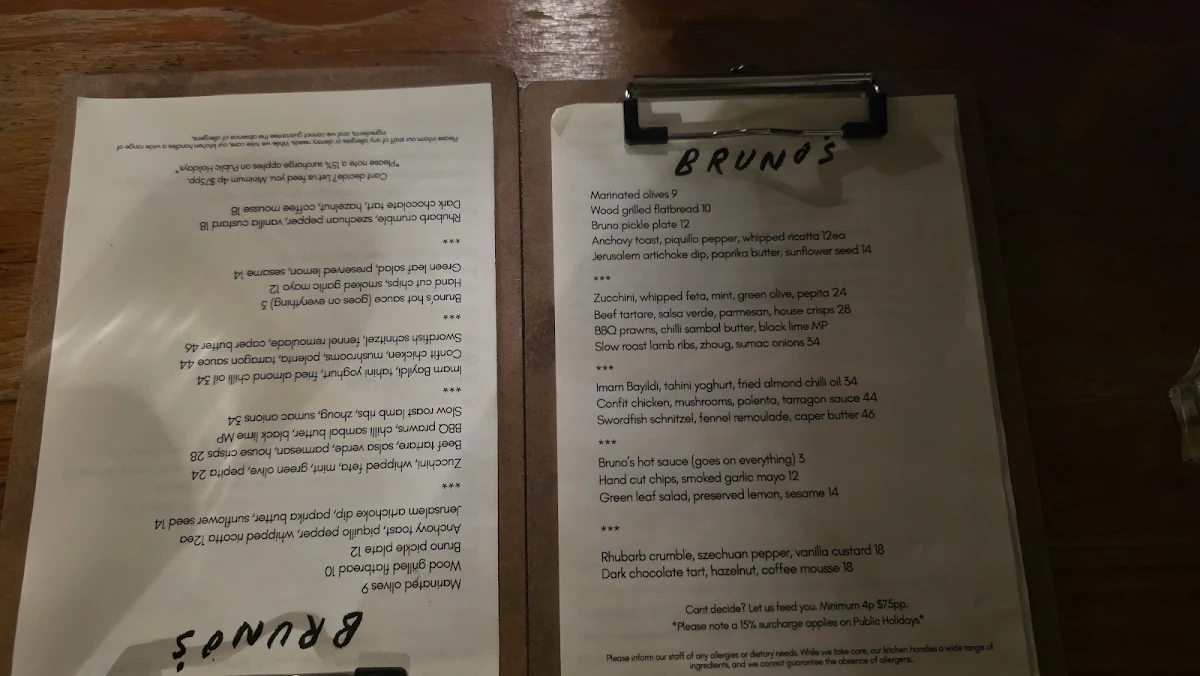 BRUNO'S
Marinated olives 9
Wood grilled flatbread 10
Bruno pickle plate 12
Anchovy toast, piquillo pepper, whipped ricotta 12ea
Jerusalem artichoke dip, paprika butter, sunflower seed 14
***
Zucchini, whipped feta, mint, green olive, pepita 24
Beef tartare, salsa verde, parmesan, house crisps 28
BBQ prawns, chilli sambal butter, black lime MP
Slow roast lamb ribs, zhoug, sumac onions 34
***
Imam Bayildi, tahini yoghurt, fried almond chilli oil 34
Confit chicken, mushrooms, polenta, tarragon sauce 44
Swordfish schnitzel, fennel remoulade, caper butter 46
***
Bruno's hot sauce (goes on everything) 3
Hand cut chips, smoked garlic mayo 12
Green leaf salad, preserved lemon, sesame 14
***
Rhubarb crumble, szechuan pepper, vanilla custard 18
Dark chocolate tart, hazelnut, coffee mousse 18
Cant decide? Let us feed you. Minimum 4p $75pp.
*Please note a 15% surcharge applies on Public Holidays*
Please inform our staff of any allergies or dietary needs. While we take care, our kitchen handles a wide range of
ingredients, and we cannot guarantee the absence of allergens.
BRUNO'S
Marinated olives 9
Wood grilled flatbread 10
Bruno pickle plate 12
Anchovy toast, piquillo pepper, whipped ricotta 12ea
Jerusalem artichoke dip, paprika butter, sunflower seed 14
***
Zucchini, whipped feta, mint, green olive, pepita 24
Beef tartare, salsa verde, parmesan, house crisps 28
BBQ prawns, chilli sambal butter, black lime MP
Slow roast lamb ribs, zhoug, sumac onions 34
***
Imam Bayildi, tahini yoghurt, fried almond chilli oil 34
Confit chicken, mushrooms, polenta, tarragon sauce 44
Swordfish schnitzel, fennel remoulade, caper butter 46
***
Bruno's hot sauce (goes on everything) 3
Hand cut chips, smoked garlic mayo 12
Green leaf salad, preserved lemon, sesame 14
***
Rhubarb crumble, szechuan pepper, vanilla custard 18
Dark chocolate tart, hazelnut, coffee mousse 18
Cant decide? Let us feed you. Minimum 4p $75pp.
*Please note a 15% surcharge applies on Public Holidays*
Please inform our staff of any allergies or dietary needs. While we take care, our kitchen handles a wide range of
ingredients, and we cannot guarantee the absence of allergens.